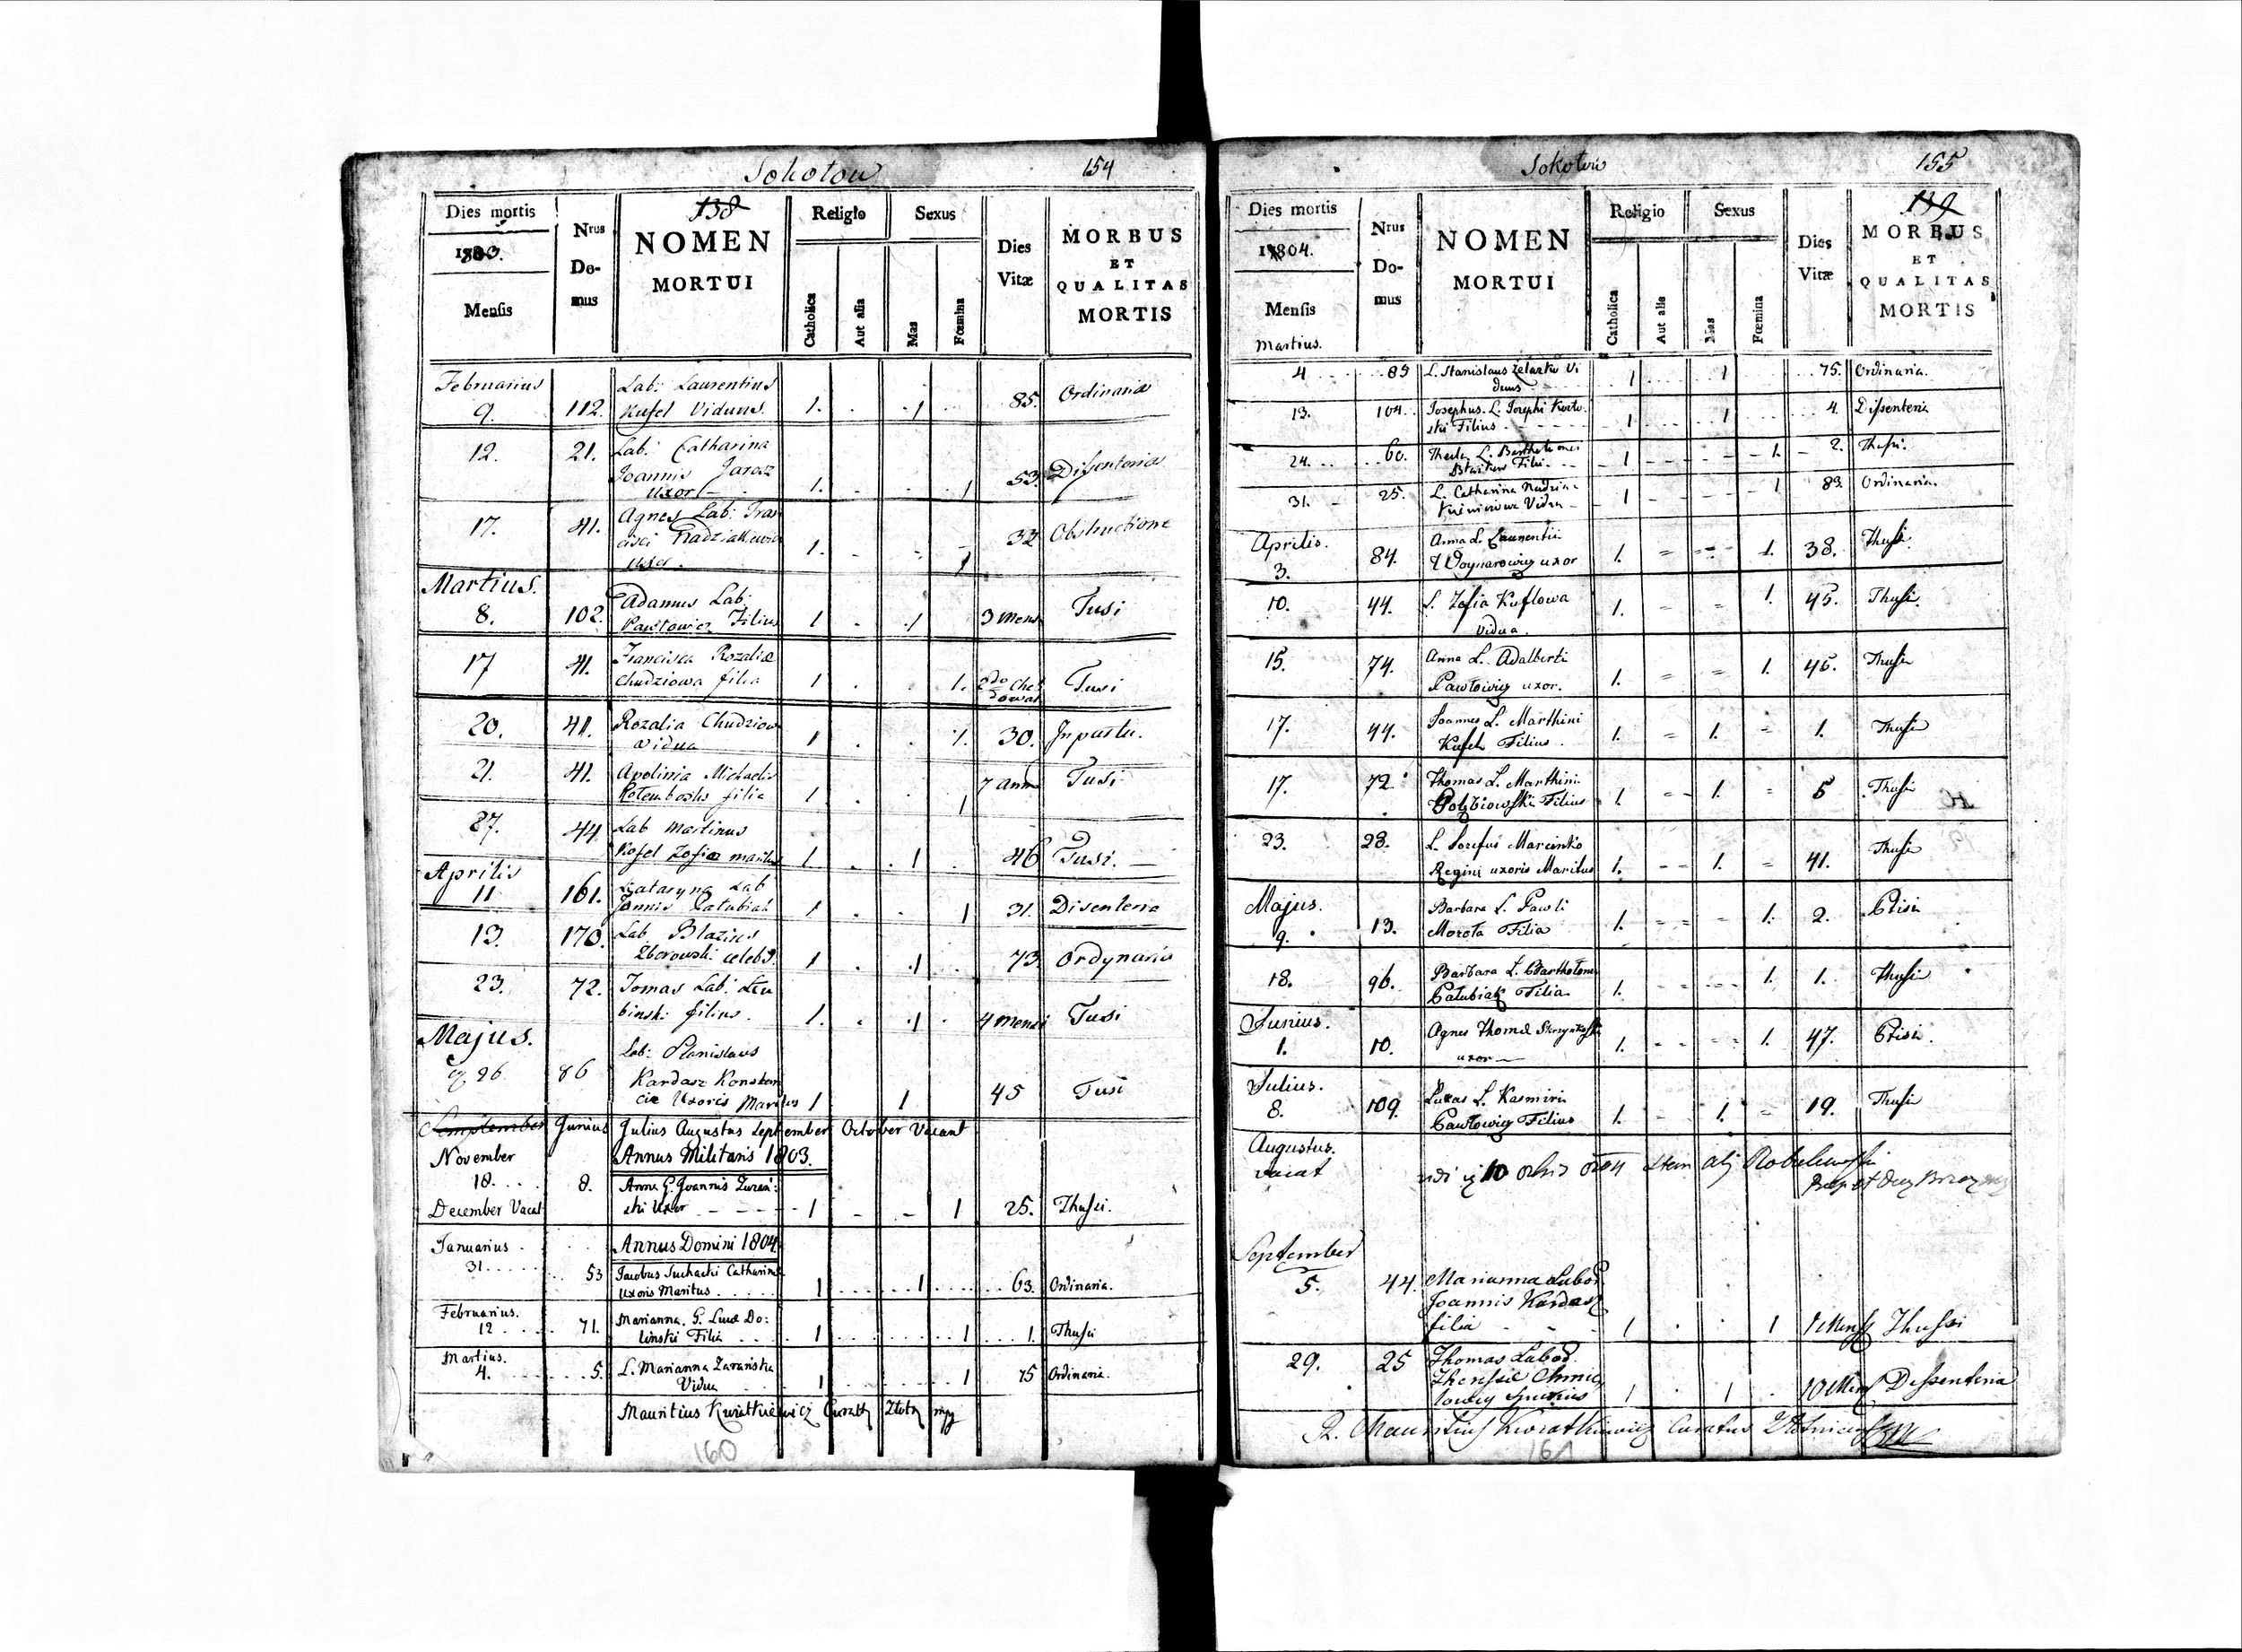 Sokołow 154
Dies mortis
1803.
Mensis
Nrus
Do-
mus
138
NOMEN
MORTUI
Religio
Catholica
Aut alia
Sexus
Mas
Fœmina
Dies
Vitæ
MORBUS
ET
QUALITAS
MORTIS
Februarius Lab: Laurentius
9. 112. Kufel Viduus. 1. . .1 85. Ordinaria
12. 21. Lab: Catharina
Joannis Jaraz
uxor 1. . . 1 53. Disenteria
17. 41. Agnes Lab: Fran
cisci
uxor. 1. 1 32 Obstructione
Martius.
8. 102. Adamus Lab:
Pawłowicz Filius 1 . .1 3 mens Tusi
17 41. Francisca Rozaliæ
Chudziowa filia 1 . . 1. Tusi
20. 41. Rozalia Chudziow
vidua 1 . . 1. 30. Inpartu.
21. 41. Apolinia Michaelis
filia 1 . 1 7 ann Tusi
27. 44 Lab Martinus
Kofel Zofiæ maritus 1 . . 1 . 46 Tusi.
Aprilis
11 161. Kataryna Lab
Jannis Patubiah 1 . . 1 31. Disenteria
13. 170. Lab Blazius
Zborowski celebs. 1 .1 73. Ordynaria
23. 72. Tomas Lab: Leu
binski filius. 1. . .1 . 4 mensi Tusi
Majus.
26 86 Lab: Stanislaus
Kardasz Konstan
ciæ Uxoris Maritus 1 1 45 Tusi
September Junius Julius Augustus September October Vacant
November Annus Militaris 1803.
18. . . . 8. Anna G. Joannis Zuran:
ski Uxor - - - - 1 - - 1 25. Thussi.
December Vacat
Januarius . . . Annus Domini 1804
31. . . . . 53 Jacobus Suchacki Catharinæ
Uxoris Maritus . . . . . 1 . . . . . 1 . . . . . 63. Ordinaria.
Februarius.
12 . . . . 71. Marianna. G. Lucæ Do:
linski Filia . . . . 1 . . . . 1 . . . 1. Thussi
Martius.
4. . . . 5. L. Marianna Zarańska
Vidua . . . 1 . . . . 1 75 Ordinaria.
Mauritius Kwiatkiewicz mpp
160
Sokołow 155
Dies mortis
1804.
Mensis
Martius.
Nrus
Do-
mus
139
NOMEN
MORTUI
Religio
Catholica
Aut alia
Sexus
Mas
Fœmina
Dies
Vitæ
MORBUS
ET
QUALITAS
MORTIS
4 . . . . . 85 L. Stanislaus Żelazko Vi
duus 1 . . . . 1 . . 75. Ordinaria.
13. 104. Josephus. L. Josephi
ski Filius . - - - 1 . . . . 1 . . . . 4. Dissenteria
24. . . . . 60. Thecla L. Bartholomei
Filia - - 1 - - - - 1. - 2. Thussi.
31. - 25. L. Catharina
Vidua - 1 - - - 1 83. Ordinaria.
Aprilis.
3. 84. Anna L. Laurentii
Woynarowicz uxor 1. 1. 38. Thussi.
10. 44. L. Zofia Kuflowa
vidua. 1. 1. 45. Thussi.
15. 74. Anna L. Adalberti
Pawłowicz uxor. 1. 1. 45. Thussi
17. 44. Joannes L. Marthini
Kufel Filius. 1. 1. 1. Thussi
17. 72. Thomas L. Marthini
Gołębiowski Filius 1. 1. 5 Thussi
23. 28. L. Josefus Marcinko
Regini uxoris Maritus 1. 1. 41. Thussi
Majus.
9. 13. Barbara L. Pawli
Morota Filia 1. 1. 2. Ptisi
18. 96. Barbara L. Bartholom
Całubiak Filia 1. 1. 1. Thussi
Junius.
1. 10. Agnes Thomæ
uxor 1. 1. 47. Ptisi.
Julius.
8. 109. Lukas L. Kasmiri
Pawłowicz Filius 1. 1. 19. Thussi
Augustus.
vacat
September
5. 44. Marianna Labor.
Joannis Kardasz
filia - - - 1 . . 1 1 Mens Thussi
29. 25 Thomas Labor.
spurius 1 . 1 . 10 Mens Dissenteria
Mauritius Kwiatkiewicz Curatus
161